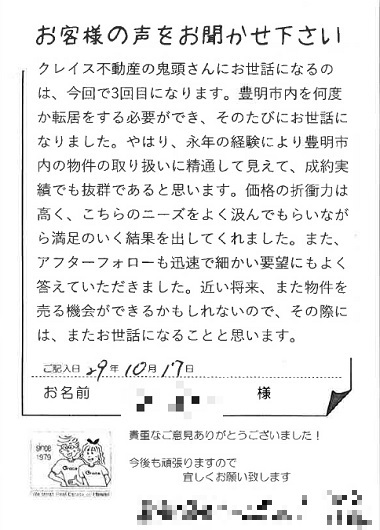 お客様の声をお聞かせ下さい
クレイス不動産の鬼頭さんにお世話になるの
は、今回で3回目になります。豊明市内を何度
か転居をする必要ができ、そのたびにお世話に
なりました。やはり、永年の経験により豊明市
内の物件の取り扱いに精通して見えて、成約実
績でも抜群であると思います。価格の折衝力は
高く、こちらのニーズをよく汲んでもらいなが
ら満足のいく結果を出してくれました。また、
アフターフォローも迅速で細かい要望にもよく
答えていただきました。近い将来、また物件を
売る機会ができるかもしれないので、その際に
は、またお世話になることと思います。
ご記入日 29年 10月 17日
お名前 様
貴重なご意見ありがとうございました！
今後も頑張りますので
宜しくお願い致します
since
1979